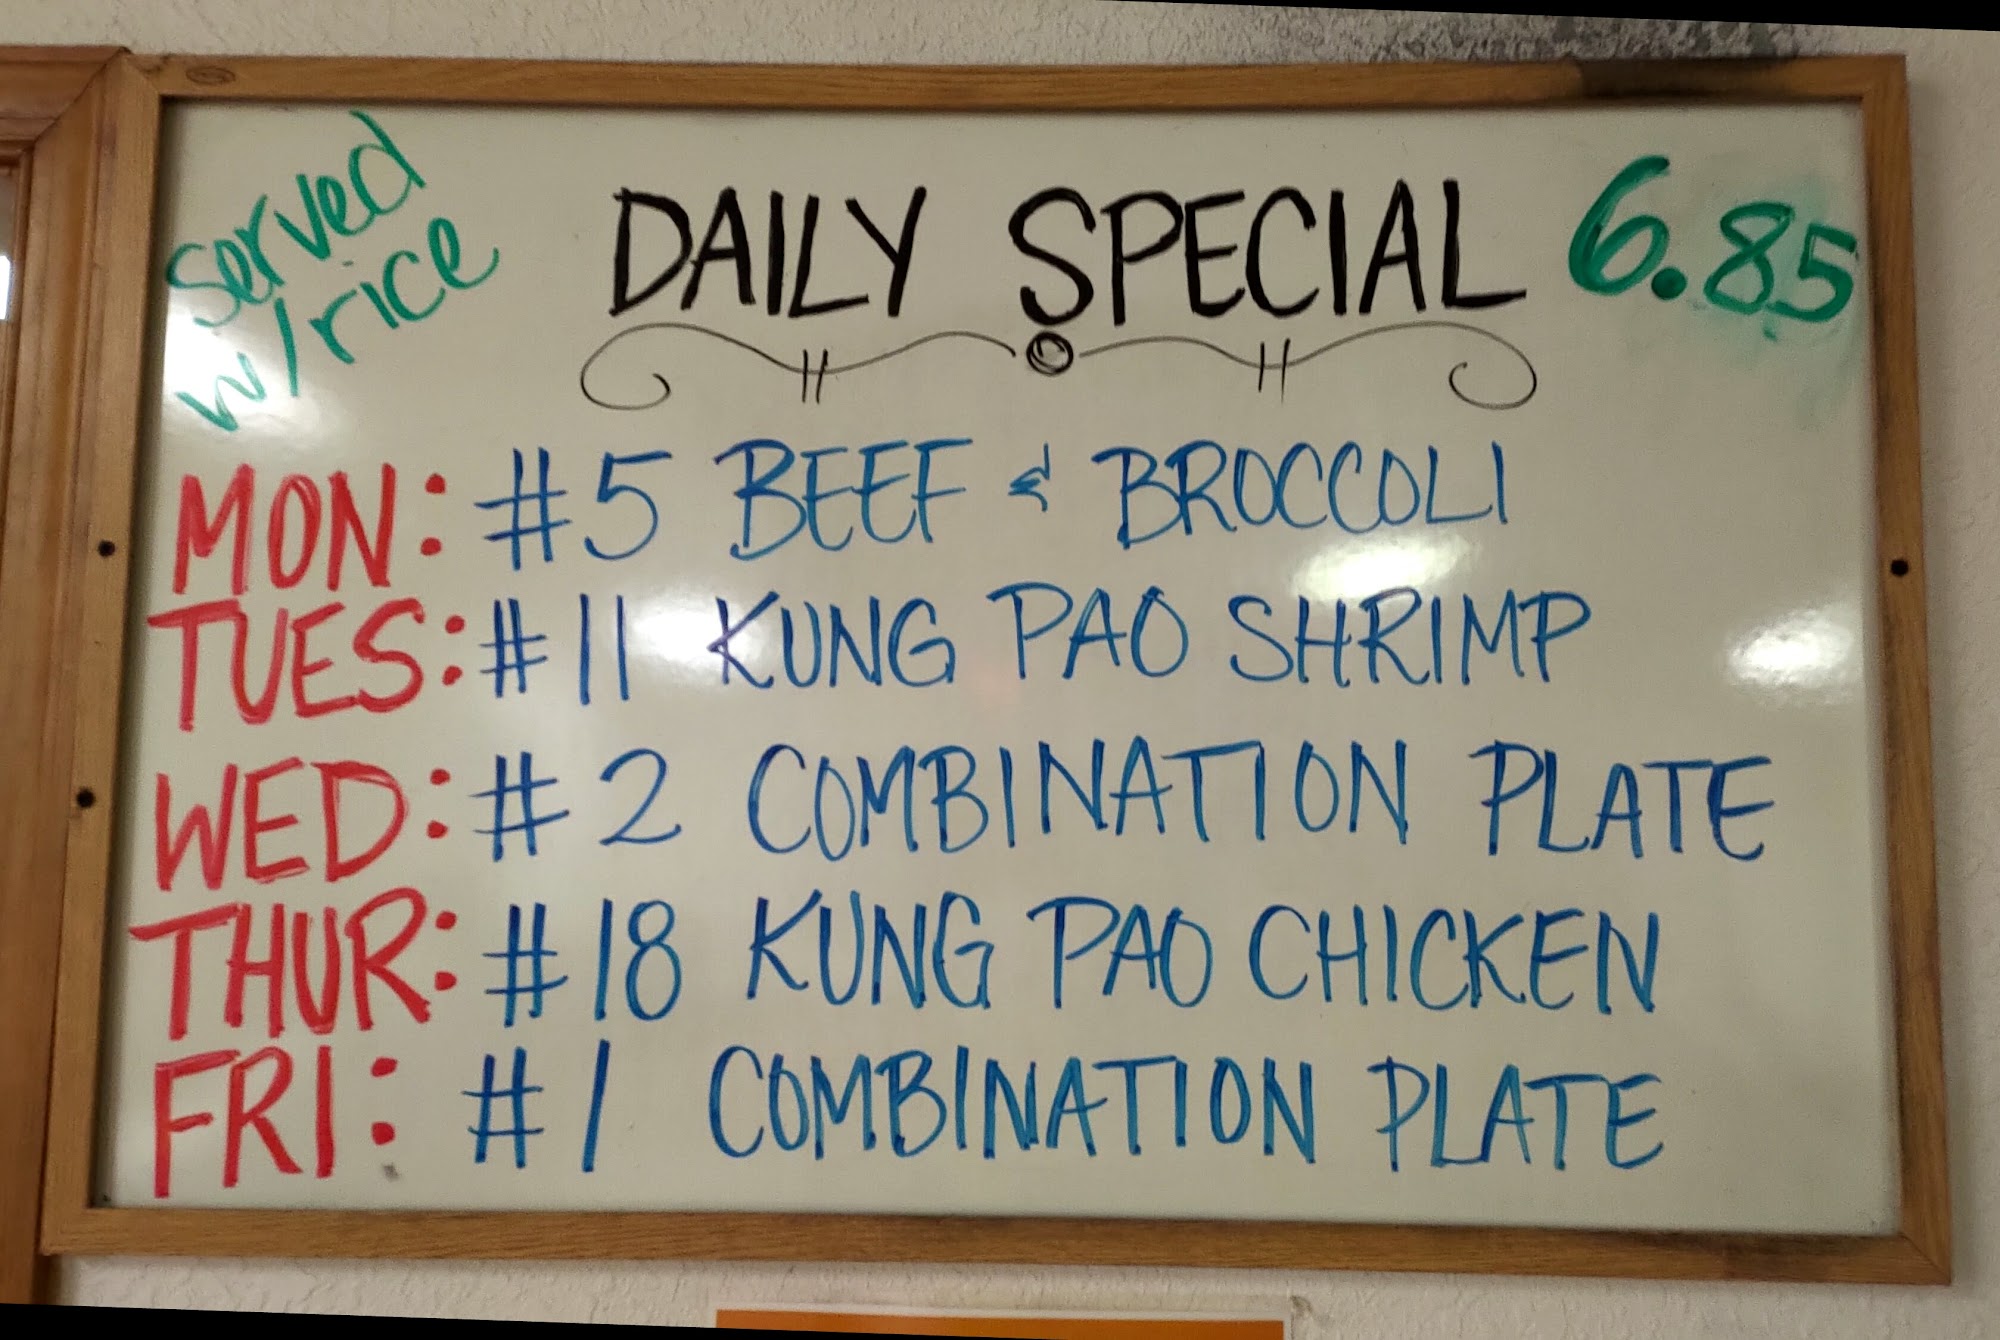 served
w/rice
DAILY SPECIAL 6.85
MON: #5 BEEF & BROCCOLI
TUES: #11 KUNG PAO SHRIMP
WED: #2 COMBINATION PLATE
THUR: #18 KUNG PAO CHICKEN
FRI: #1 COMBINATION PLATE